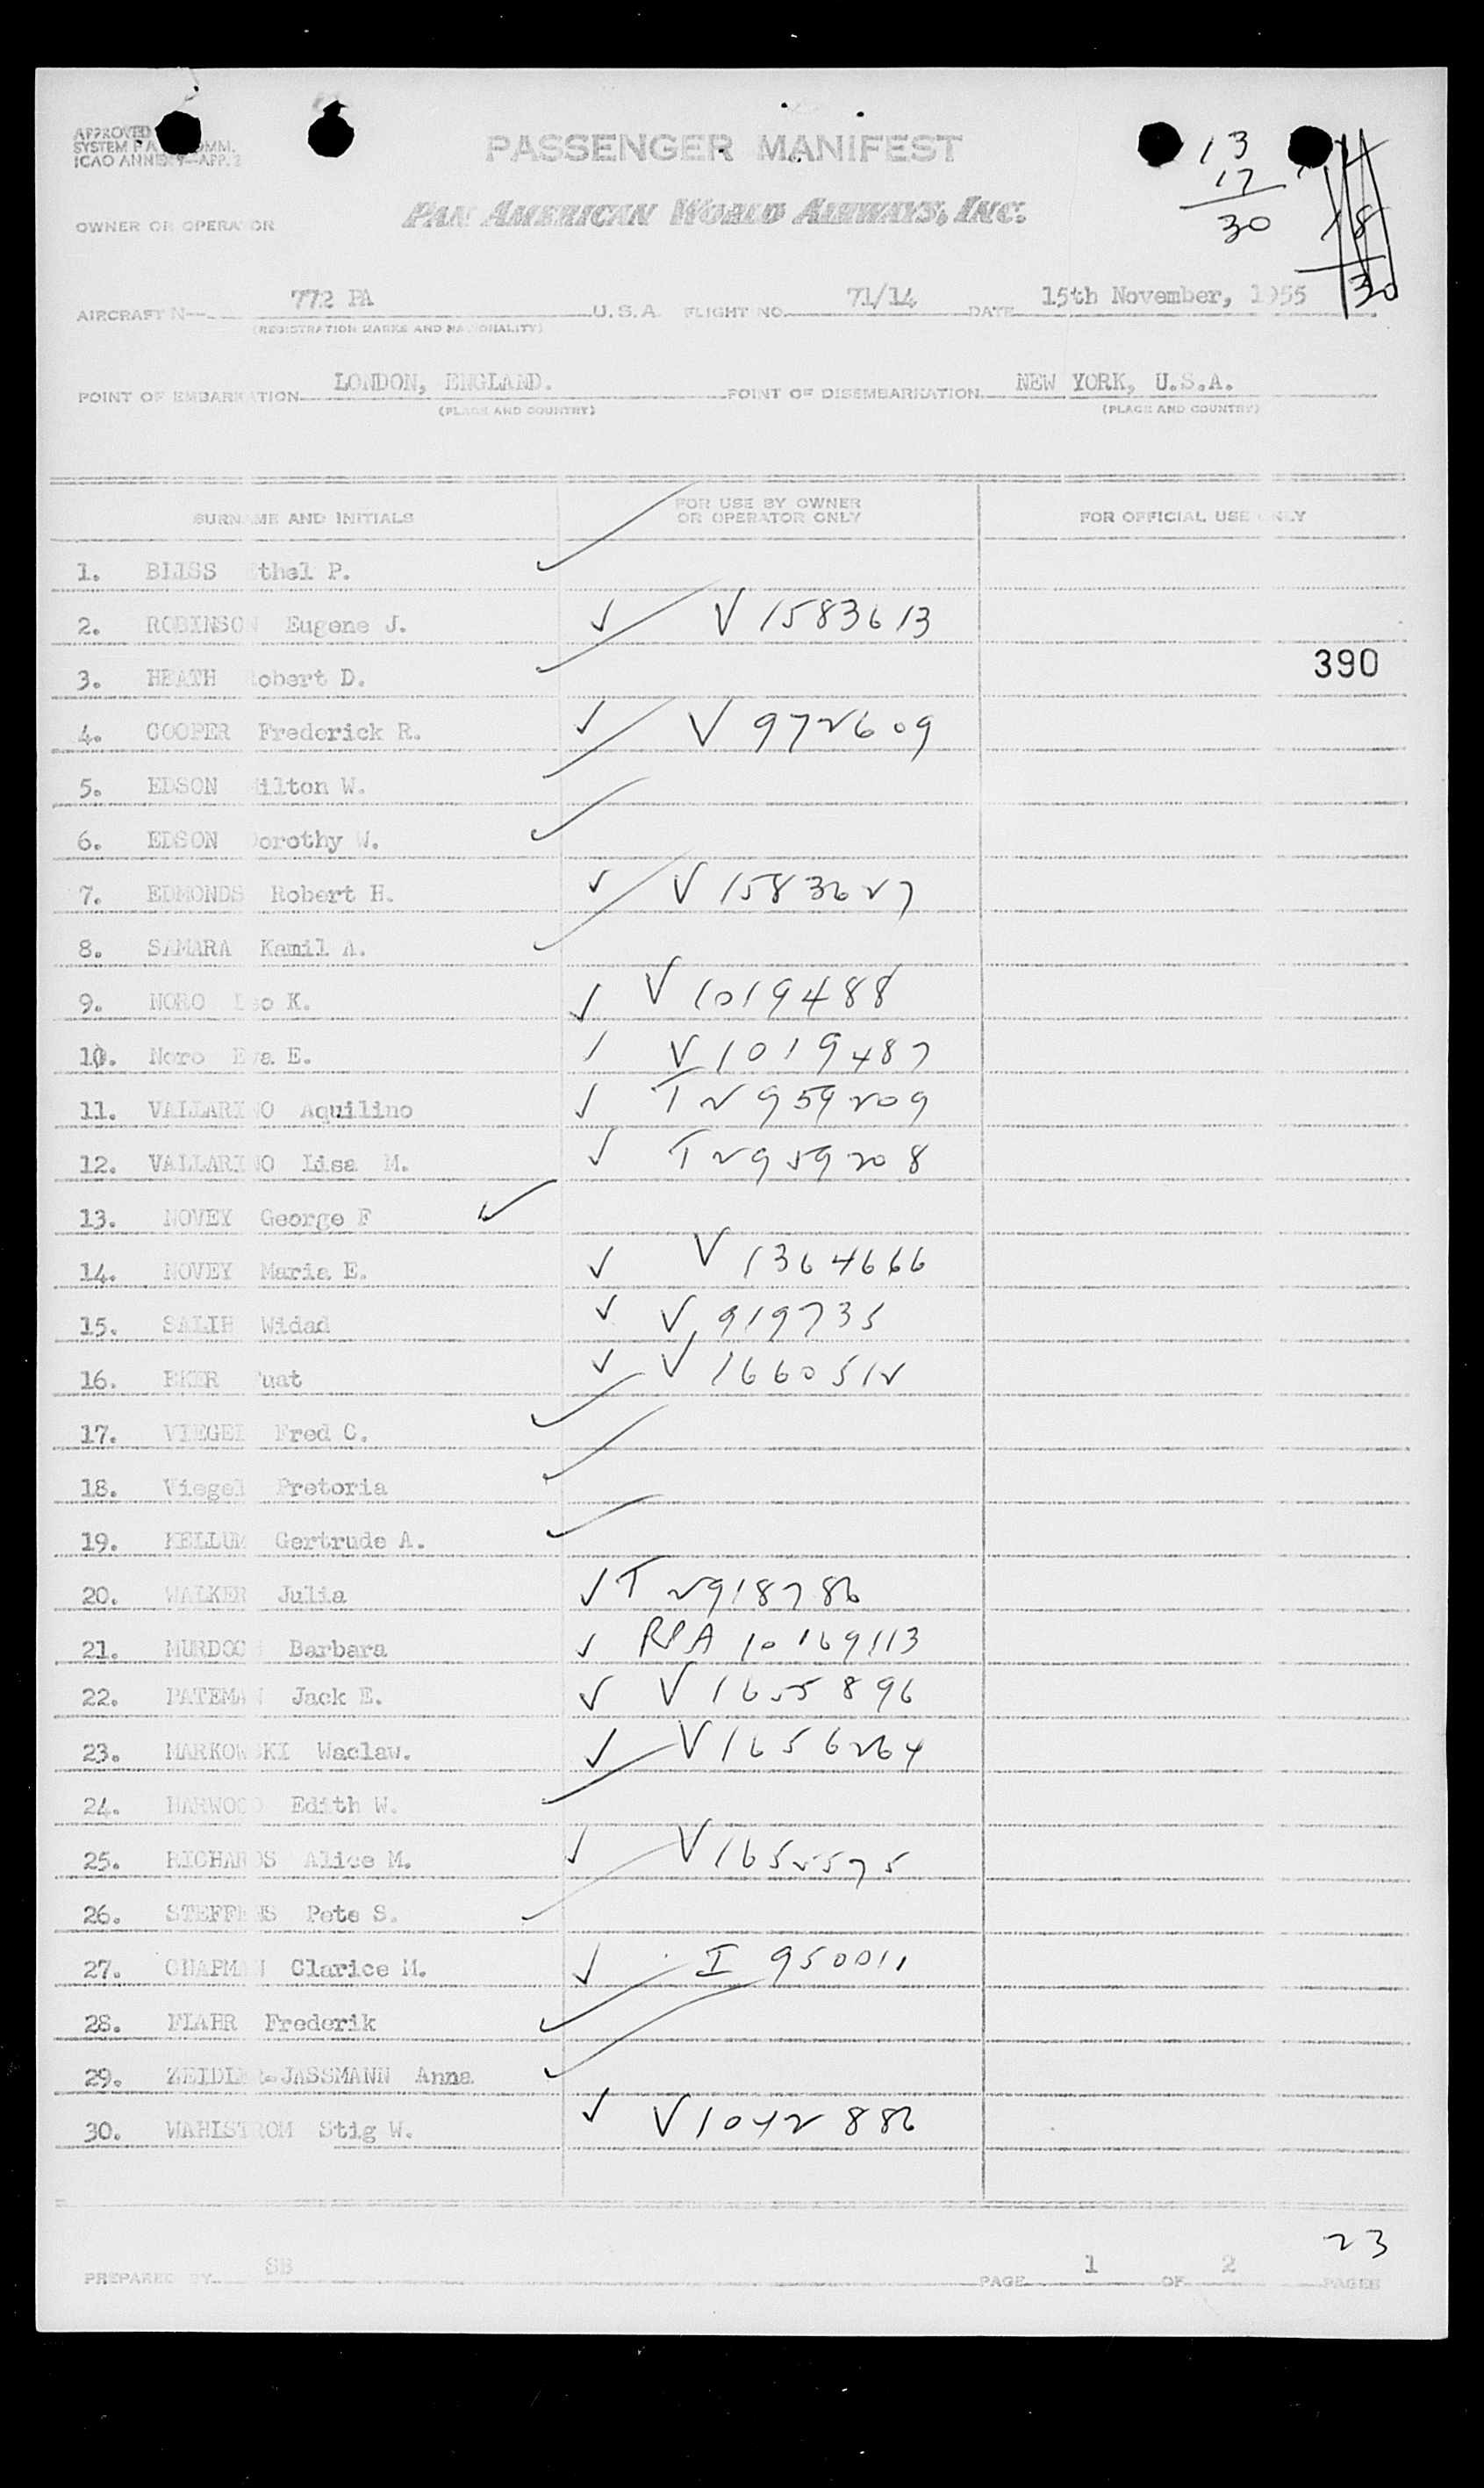 APPROVED
SYSTEM
ICAO ANNEX 9—APP. 3
13
17
30
14
18
30
PASSENGER MANIFEST
OWNER OR OPERATOR PAN AMERICAN WORLD AIRWAYS, INC.
AIRCRAFT N— 772 PA U.S.A. FLIGHT NO. 71/14 DATE 15th November, 1955
(REGISTRATION MARKS AND NATIONALITY)
POINT OF EMBARKATION LONDON, ENGLAND. POINT OF DISEMBARKATION NEW YORK, U.S.A.
(PLACE AND COUNTRY) (PLACE AND COUNTRY)
SURNAME AND INITIALS FOR USE BY OWNER OR OPERATOR ONLY FOR OFFICIAL USE ONLY
1. BLISS Ethel P.
2. ROBINSON Eugene J. V 1583613
390
3. HEATH Robert D.
4. COOPER Frederick R. V 972609
5. EDSON Milton W.
6. EDSON Dorothy W.
7. EDMONDS Robert H. V 1583627
8. SAMARA Kamil A.
9. NORO Leo K. V 1019488
10. Noro Eva E. V 1019487
11. VALLARINO Aquilino T 2959209
12. VALLARINO Lisa M. T 2959208
13. NOVEY George F
14. NOVEY Maria E. V 1364666
15. SALIH Widad V 919735
16. EKER Fuat V 1660512
17. VIEGEL Fred C.
18. Viegel Pretoria
19. KELLUM Gertrude A.
20. WALKER Julia T 2918786
21. MURDOCH Barbara RPA 10169113
22. PATEMAN Jack E. V 1655896
23. MARKOWSKI Waclaw. V 1656264
24. HARWOOD Edith W.
25. RICHARDS Alice M. V 1655575
26. STEFFENS Pete S.
27. CHAPMAN Clarice M. I 950011
28. FLAHR Frederik
29. ZEIDLER-JASSMANN Anna
30. WAHLSTROM Stig W. V 1042886
23
PREPARED BY SB PAGE 1 OF 2 PAGES